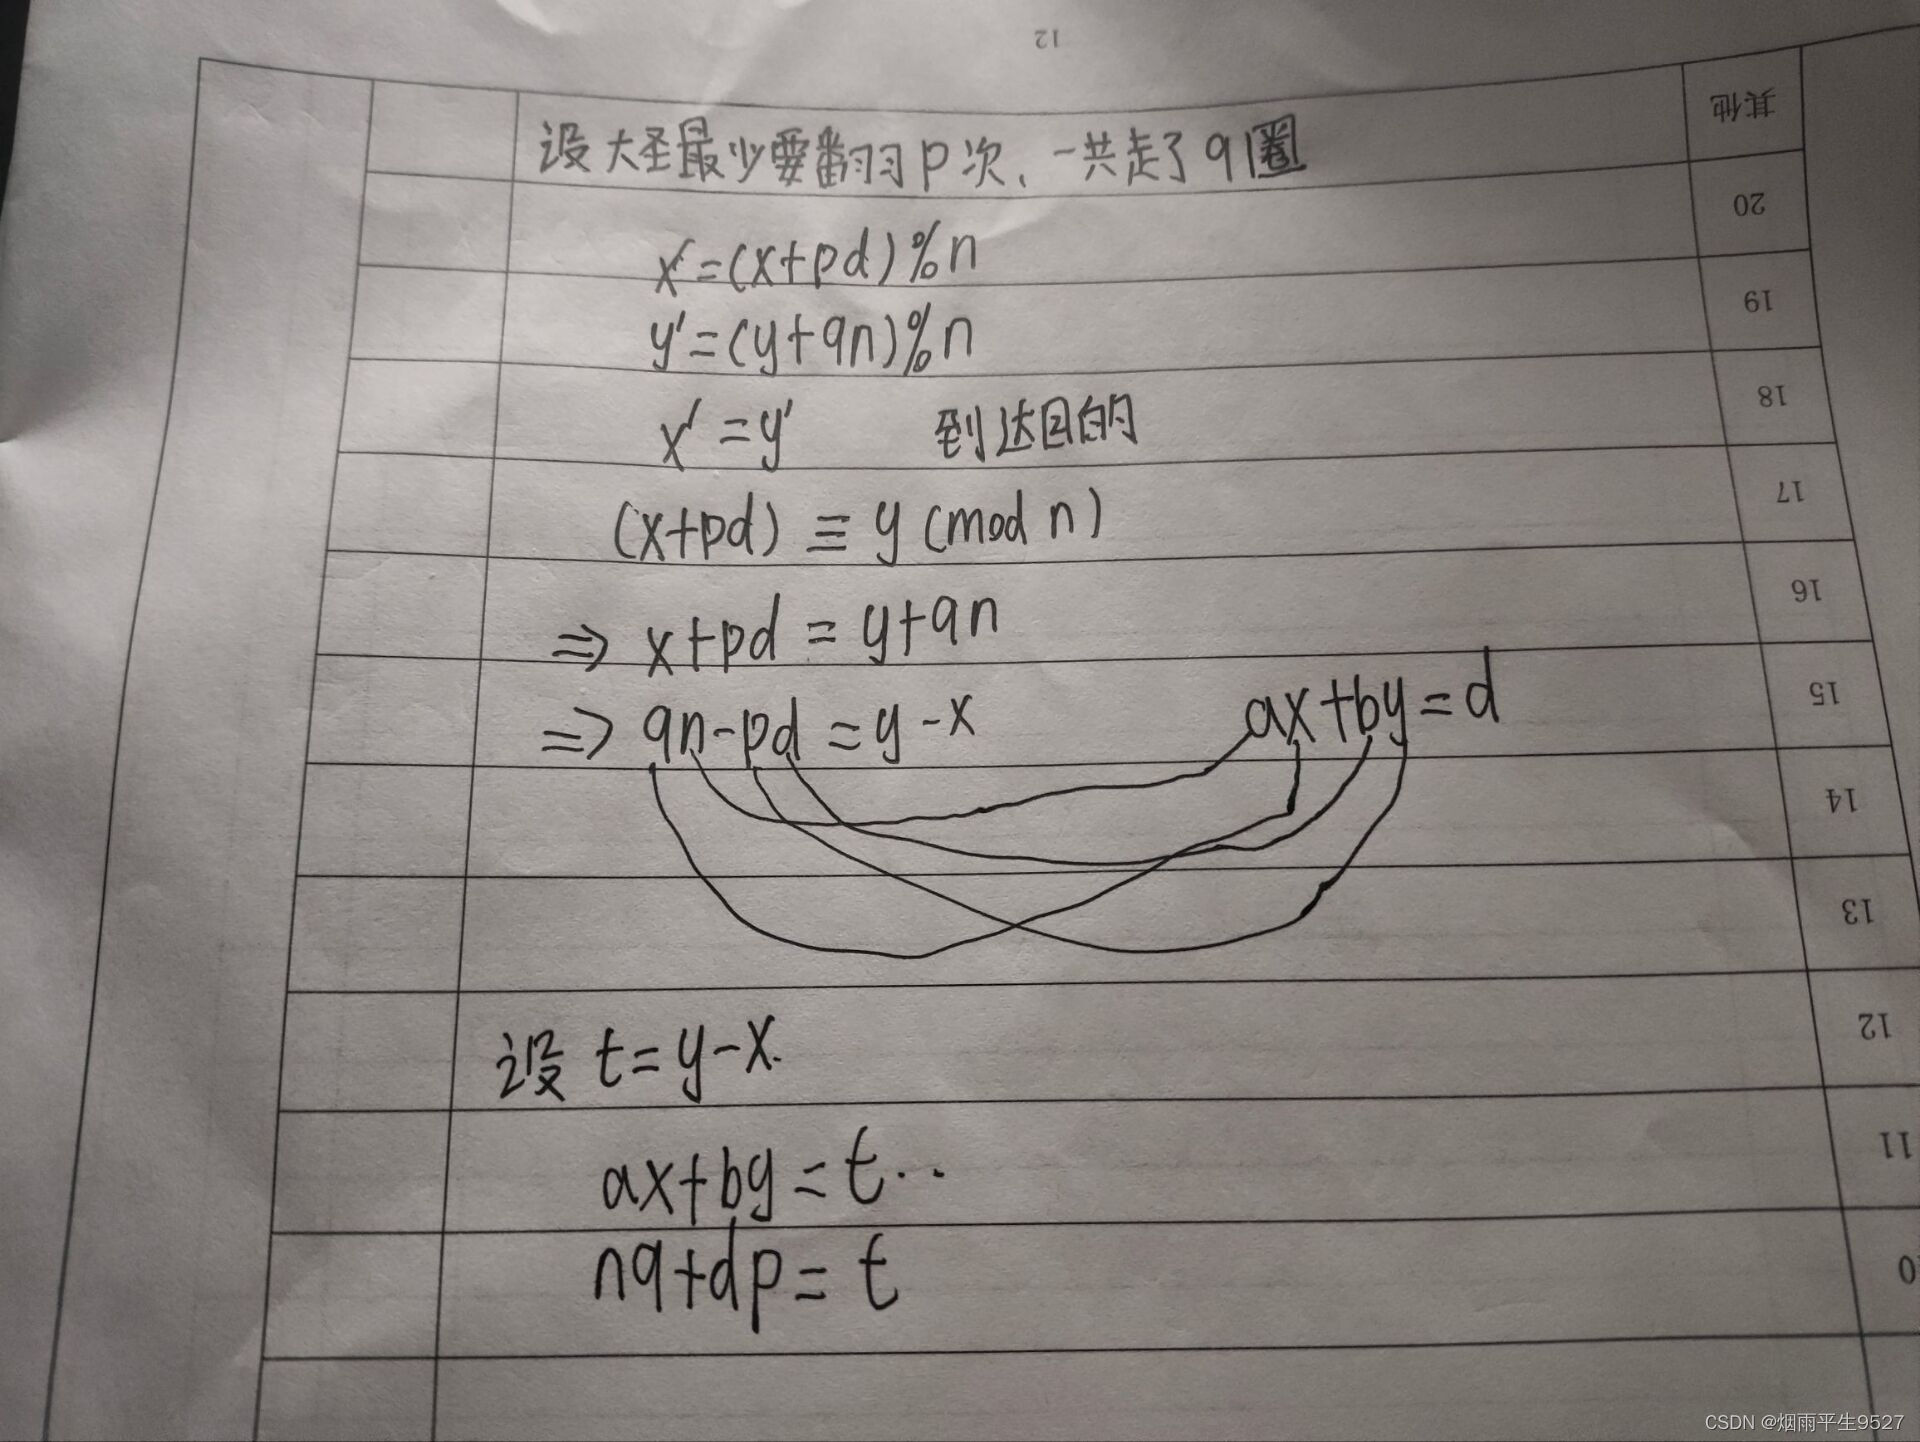 12
其他
设大圣最少要翻羽P次、一共走了q圈
20
x'=(x+pd)%n
19
y'=(y+qn)%n
18
x'=y' 到达目的
17
(x+pd)≡y(mod n)
16
⇒ x+pd=y+qn
15
⇒ qn-pd=y-x ax+by=d
14
13
12
设 t=y-x.
11
ax+by=t..
nq+dp=t
0
CSDN @烟雨平生9527